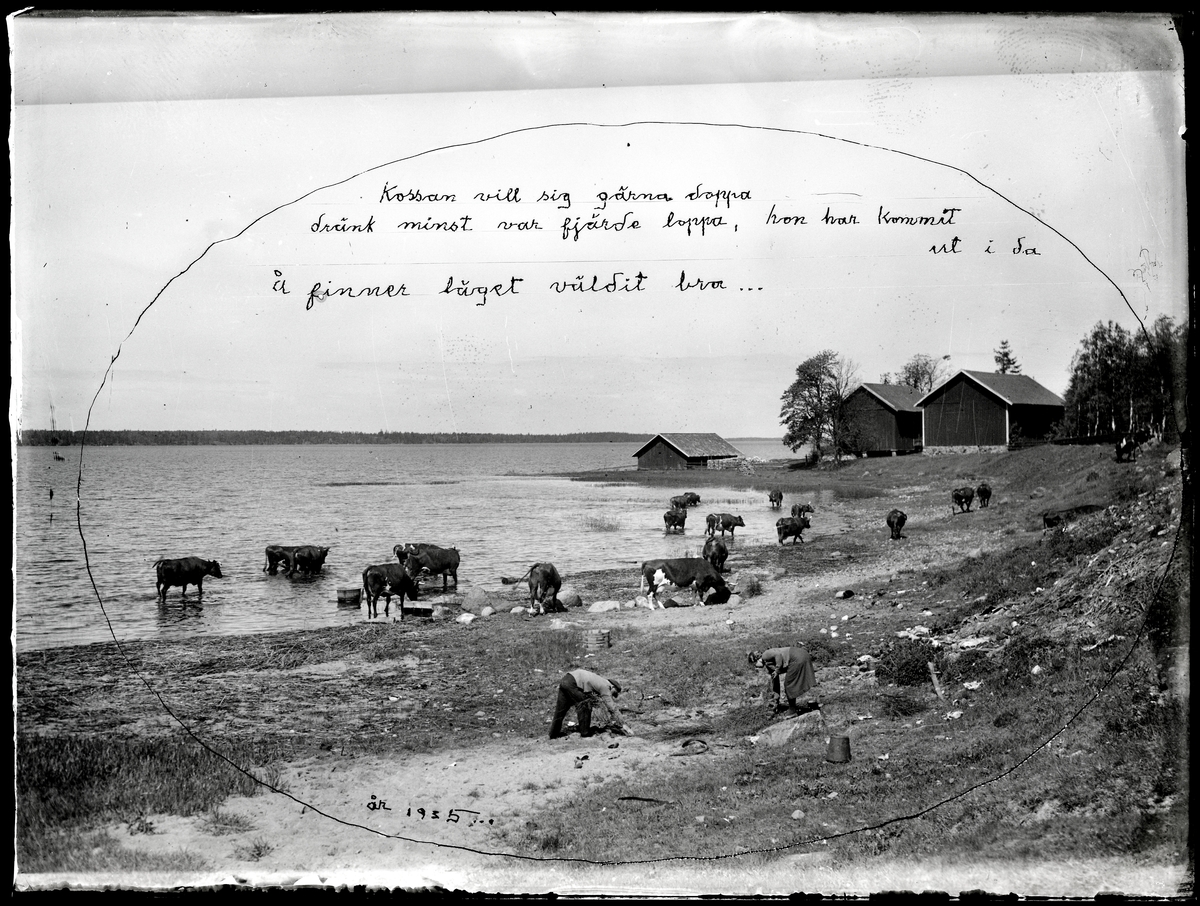 Kossan vill sig gärna doppa
dränk minst var fjärde loppa, hon har kommit
ut i da
Å finner läget väldit bra ...
år 1935...